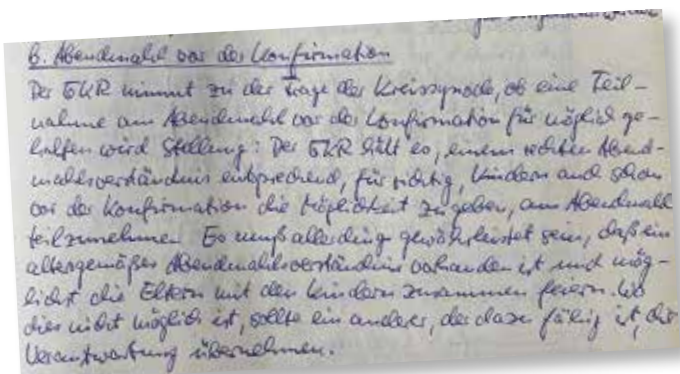 B. Abendmahl vor der Konfirmation
Der GKR nimmt zu der Frage der Kreissynode, ob eine Teil-
nahme am Abendmahl vor der Konfirmation für möglich ge-
halten wird Stellung: Der GKR hält es, einem rechten Abend-
mahlsverständnis entsprechend, für richtig, Kindern auch schon
vor der Konfirmation die Möglichkeit zu geben, am Abendmahl
teilzunehmen. Es muß allerdings gewährleistet sein, daß ein
altersgemäßes Abendmahlsverständnis vorhanden ist und mög-
lichst die Eltern mit den Kindern zusammen feiern. Wo
dies nicht möglich ist, sollte ein anderer, der dazu fähig ist, die
Verantwortung übernehmen.